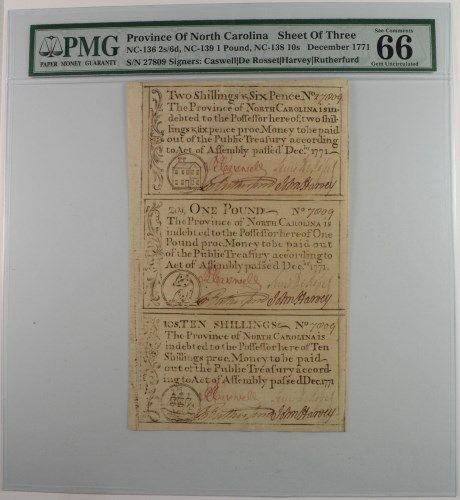 PMG
PAPER MONEY GUARANTY
Province Of North Carolina Sheet Of Three
NC-136 2s/6d, NC-139 1 Pound, NC-138 10s December 1771
S/N 27809 Signers: Caswell|De Rosset|Harvey|Rutherfurd
See Comments
66
Gem Uncirculated
Two Shillings & Six Pence. No 17009
The Province of North Carolina is
indebted to the Possessor hereof, two shil-
lings & six pence proc. Money to be paid
out of the Public Treasury according
to Act of Assembly passed Decr. 1771
RCaswell
Rutherfurd John Harvey
20s. One Pound No 7009
The Province of North Carolina is
indebted to the Possessor here of One
Pound proc. Money to be paid out
of the Public Treasury according to
Act of Assembly passed Decr. 1771.
RCaswell
Rutherfurd John Harvey
10s. Ten Shillings No 7009
The Province of North Carolina is
indebted to the Possessor here of Ten
Shillings proc. Money to be paid
out of the Public Treasury accord-
ing to Act of Assembly passed Dec. 1771
RCaswell
Rutherfurd John Harvey